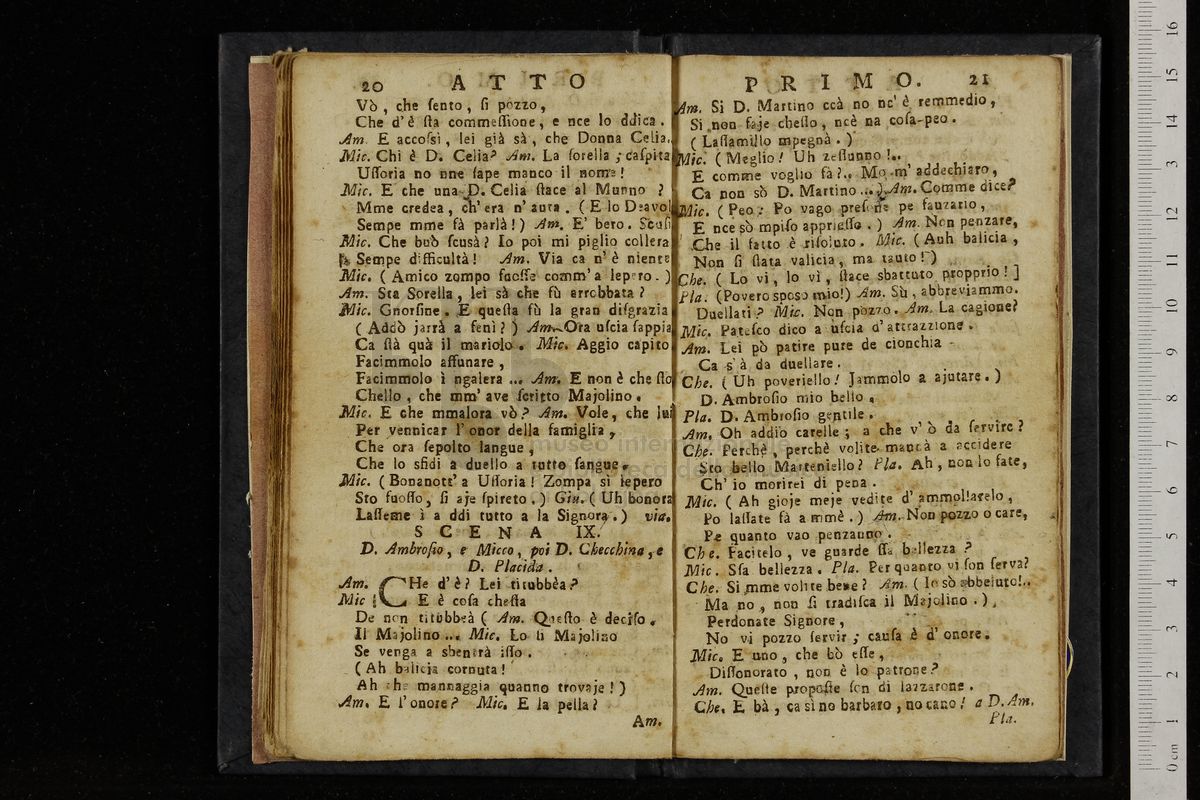 20 ATTO
Vò, che ſento, ſi pozzo,
Che d'è ſta commeſſione, e nce lo ddica.
Am. E accoſsì, lei già sà, che Donna Celia..
Mic. Chi è D. Celia? Am. La ſorella; caſpita
Uſſoria no nne ſape manco il nome!
Mic. E che una D. Celia ſtace al Munno?
Mme credea, ch'era n'auta. (E lo Deavol
Sempe mme fà parlà!) Am. E' bero. Scuſi
Mic. Che buò ſcusà? Io poi mi piglio collera
Sempe difficultà! Am. Via ca n'è niente
Mic. (Amico zompo fuoſſe comm'a lepero.)
Am. Sta Sorella, lei sà che fù arrobbata?
Mic. Gnorſine. E queſta fù la gran diſgrazia
(Addò jarrà a fenì?) Am. Ora uſcia ſappia
Ca ſtà quà il mariolo. Mic. Aggio capito
Facimmolo aſſunare,
Facimmolo ì ngalera... Am. E non è che ſto
Chello, che mm'ave ſcritto Majolino.
Mic. E che mmalora vò? Am. Vole, che lui
Per vennicar l'onor della famiglia,
Che ora ſepolto langue,
Che lo sfidi a duello a tutto ſangue.
Mic. (Bonanott'a Uſſoria! Zompa sì lepero
Sto fuoſſo, ſi aje ſpireto.) Giu. (Uh bonora
Laſſeme ì a ddì tutto a la Signora.) via.
SCENA IX.
D. Ambroſio, e Micco, poi D. Checchina, e
D. Placida.
Am. CHe d'è? Lei titubbèa?
Mic E è coſa cheſta
De non titubbeà (Am. Queſto è deciſo.
Il Majolino... Mic. Lo ſi Majolino
Se venga a sbentrà iſſo.
(Ah balicia cornuta!
Ah che mannaggia quanno trovaje!)
Am. E l'onore? Mic. E la pella?
Am.
PRIMO. 21
Am. Si D. Martino ccà no nc'è remmedio,
Si non faje cheſto, ncè na coſa-peo.
(Laſſamillo mpegnà.)
Mic. (Meglio! Uh zeſſunno!..
E comme voglio fà?.. Mo m'addechiaro,
Ca non sò D. Martino...) Am. Comme dice?
Mic. (Peo: Po vago preſone pe fauzario,
E nce sò mpiſo apprieſſo.) Am. Non penzare,
Che il fatto è riſoluto. Mic. (Auh balicia,
Non ſi ſtata valicia, ma tauto!)
Che. (Lo vi, lo vì, ſtace sbattuto propprio!]
Pla. (Povero sposo mio!) Am. Sù, abbreviammo.
Duellati? Mic. Non pozzo. Am. La cagione?
Mic. Pateſco dico a uſcia d'attrazzione.
Am. Lei pò patire pure de cionchia
Ca s'à da duellare.
Che. (Uh poveriello! Jammolo a ajutare.)
D. Ambroſio mio bello.
Pla. D. Ambroſio gentile.
Am. Oh addio carelle; a che v'ò da ſervire?
Che. Perchè, perchè volite mannà a accidere
Sto bello Marteniello? Pla. Ah, non lo fate,
Ch'io morirei di pena.
Mic. (Ah gioje meje vedite d'ammollarelo,
Po laſſate fà a mmè.) Am. Non pozzo o care,
Pe quanto vao penzanno.
Che. Facitelo, ve guarde ſſa bellezza?
Mic. Sſa bellezza. Pla. Per quanto vi ſon ſerva?
Che. Si mme volite bene? Am. (Io sò abbeluto!..
Ma no, non ſi tradiſca il Majolino.)
Perdonate Signore,
No vi pozzo ſervir; cauſa è d'onore.
Mic. E uno, che bò eſſe,
Diſſonorato, non è lo patrone?
Am. Queſte propoſte ſon di lazzarone.
Che. E bà, ca sì no barbaro, no cano! a D. Am.
Pla.